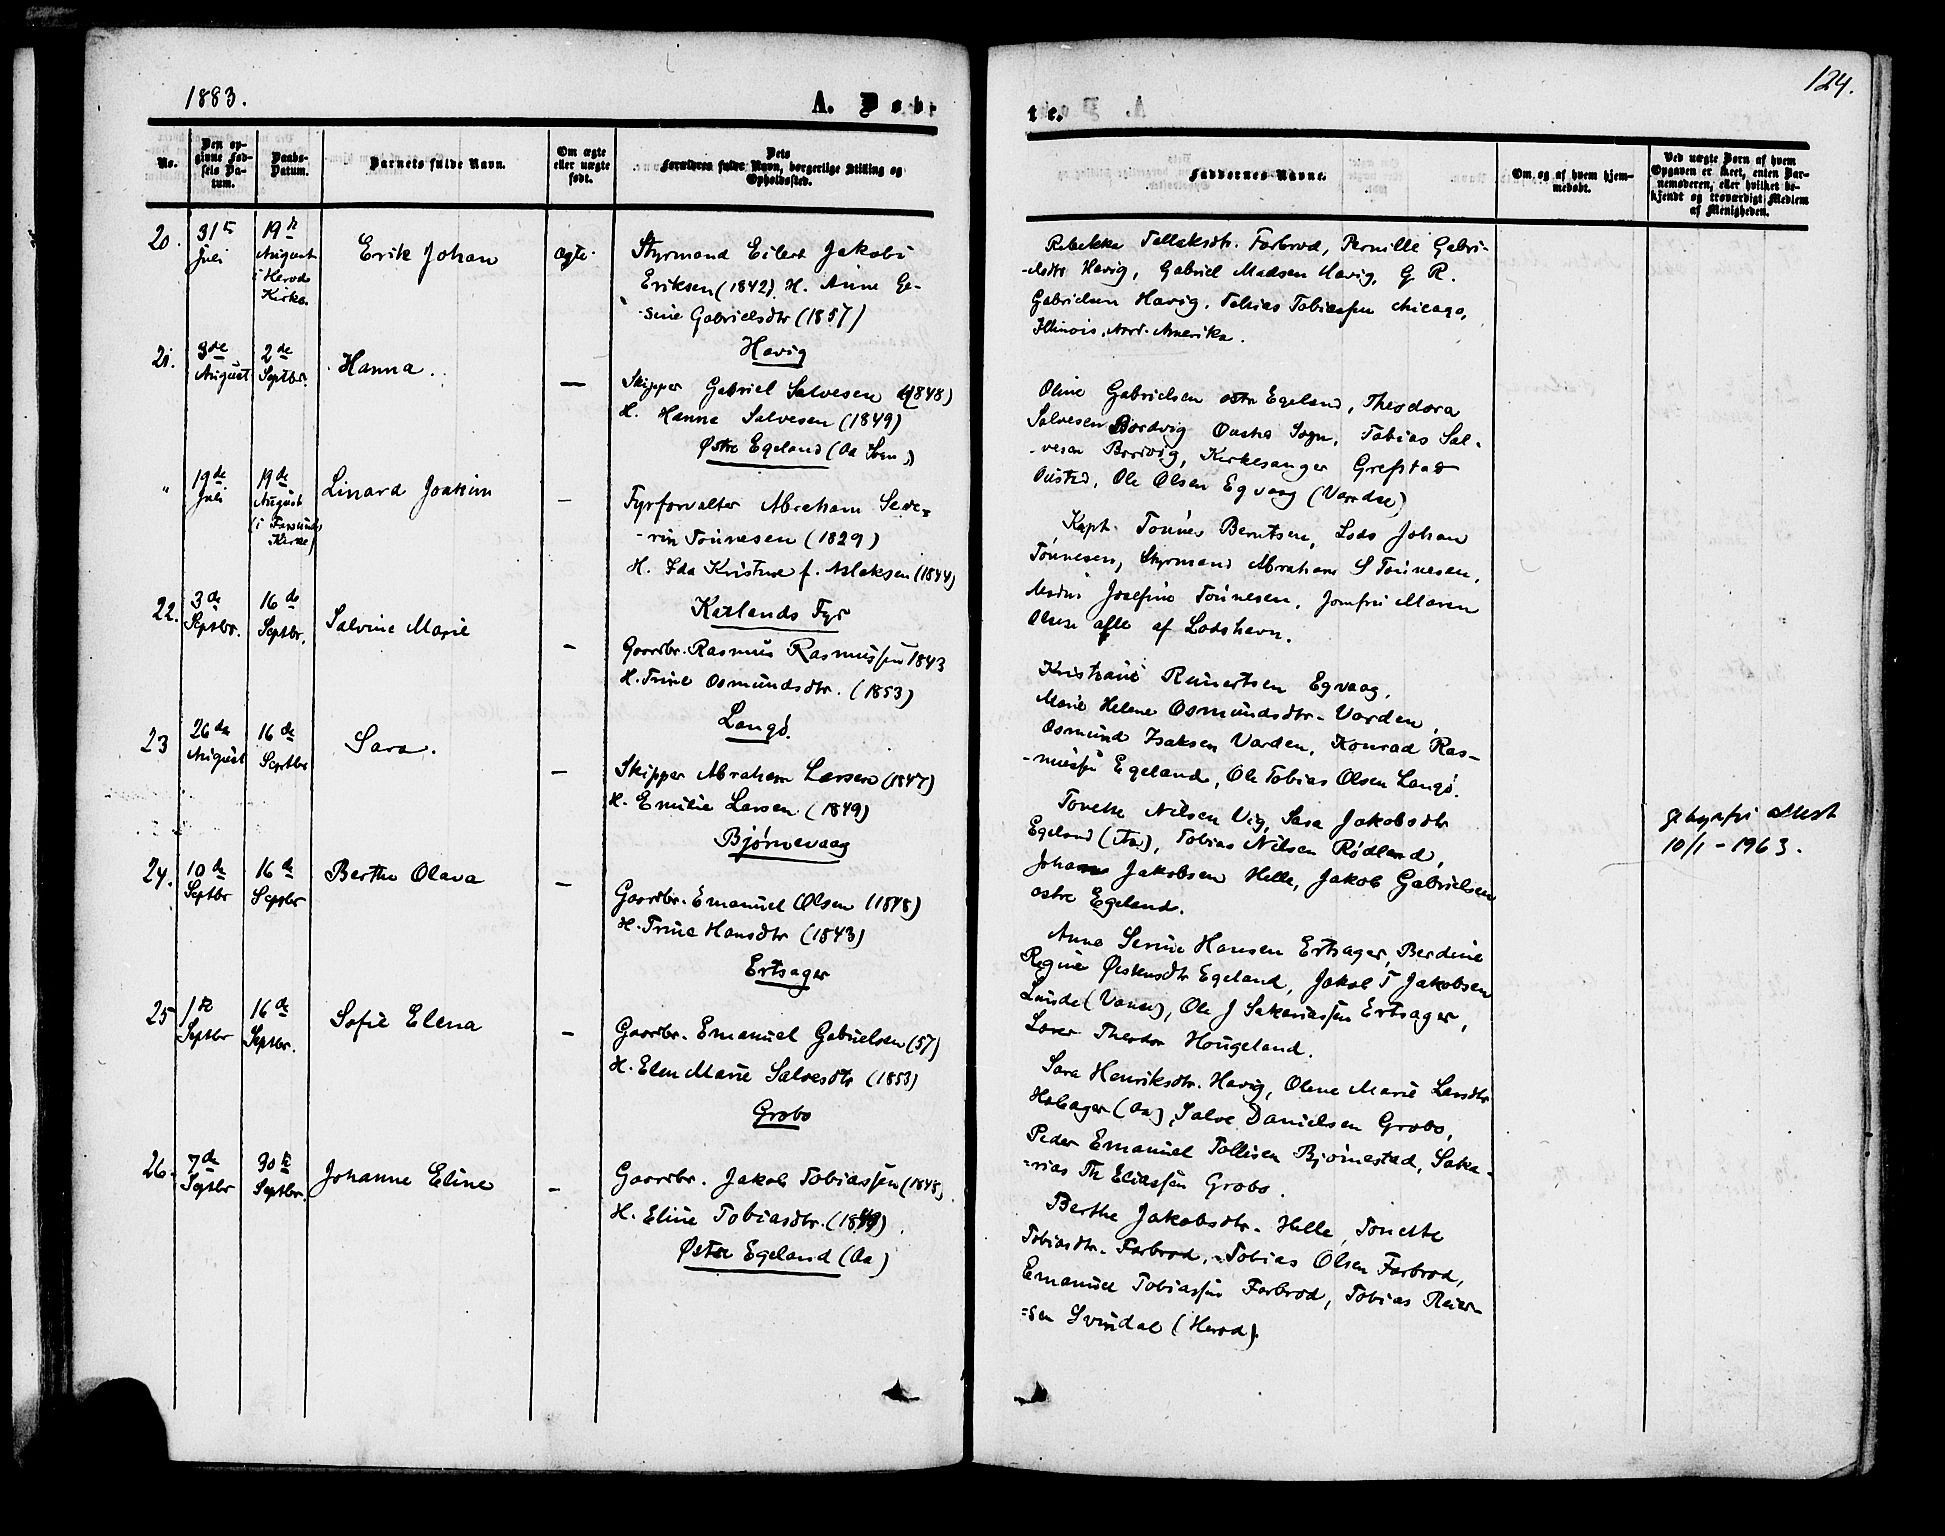 1883.
A. Døb-
te.
124.
No.
Den op-
givne Fød-
sels Da-
tum.
Daabs-
Datum.
Barnets fulde Navn.
Om ægte
eller uægte
født.
Dets
Forældres fulde Navn, borgerlige Stilling og
Opholdssted.
Faddernes Navne.
Om, og af hvem hjem-
medøbt.
Ved uægte Børn af hvem
Opgaven er skeet, enten Bar-
nemoderen, eller hvilket be-
kjendt og troværdigt Medlem
af Menigheden.
20.
31te
Juli
19de
August
i Herods
Kirke.
Erik Johan
ægte.
Styrmand Eilert Jakobs
Eriksen (1842). H. Anne Ge-
-sine Gabrielsdtr (1857)
Havig
Rebekka Tellaksdtr. Farbrod, Pernille Gabri-
-elsdtr Havig, Gabriel Madsen Havig, G R.
Gabrielsen Havig. Tobias Tobiassen Chicago,
Illinois, Nord-Amerika.
21.
3de
August
2de
Septbr.
Hanna.
—
Skipper Gabriel Salvesen (1848)
H. Hanne Salvesen (1849)
Østre Egeland (Aa Sogn)
Oline Gabrielsen østre Egeland, Theodora
Salvesen Bordvig Sogn, Tobias Sal-
-vesen Bordvig, Kirkesanger Grefstad
Ousted, Ole Olsen Egvaag
"
19de
Juli
19de
August
(i Farsunds
Kirke)
Linard Joakim
—
Fyrforvalter Abraham Seve-
-rin Tönnesen (1829)
H. Ida Kristine f. Aslaksen (1844)
Katlands Fyr
Kapt. Tönnes Berntsen, Lods Johan
Tönnesen, Styrmand Abraham S Tönnesen,
Madm Josefine Tönnesen, Jomfru Maren
Olsen alle af Lodshavn.
22.
3de
Septbr.
16de
Septbr.
Salvine Marie
—
Gaardbr. Rasmus Rasmussen 1843
H. Trine Osmundsdtr. (1853)
Langø.
Kristiane Reinertsen Egvaag,
Marie Helene Osmundsdtr. Varden,
Osmund Isaksen Varden, Konrad Ras-
-mussen Egeland, Ole Tobias Olsen Langø.
23
26de
August
16de
Septbr
Sara.
—
Skipper Abraham Larsen (1847)
H. Emilie Larsen (1849)
Bjørnevaag
Tonette Nilsen Vig, Sara Jakobsdtr
Egeland, Tobias Nilsen Rødland,
Johan Jakobsen Helle, Jakob Gabrielsen
østre Egeland.
10/1 - 1963.
24.
10de
Septbr
16de
Septbr
Berthe Olava
—
Gaardbr. Emanuel Olsen (1848)
H. Trine Hansdtr (1843)
Ertsager
Anne Serine Hansen Ertsager, Berdine
Regine Egeland, Jakob T Jakobsen
Lunde (Vanse), Ole J Sakariassen Ertsager,
Lærer Theodor Hougeland.
25
1ste
Septbr
16de
Septbr.
Sofie Elena
—
Gaardbr. Emanuel Gabrielsen (57)
H. Elen Marie Salvesdtr (1853)
Grobo
Sara Henriksdtr. Havig, Olene Marie Larsdtr
Habager (Aa), Salve Danielsen Grobo,
Peder Emanuel Tollisen Bjørnestad, Saka-
-rias Th Eliassen Grobo.
26.
7de
Septbr
30te
Septbr.
Johanne Eline
—
Gaardbr. Jakob Tobiassen (1848)
H. Eline Tobiasdtr. (1849).
Østre Egeland (Aa)
Berthe Jakobsdtr. Helle, Tonette
Tobiasdtr. Farbrod, Tobias Olsen Farbrod,
Emanuel Tobiassen Farbrod, Tobias Reier-
=sen Svindal (Herad).